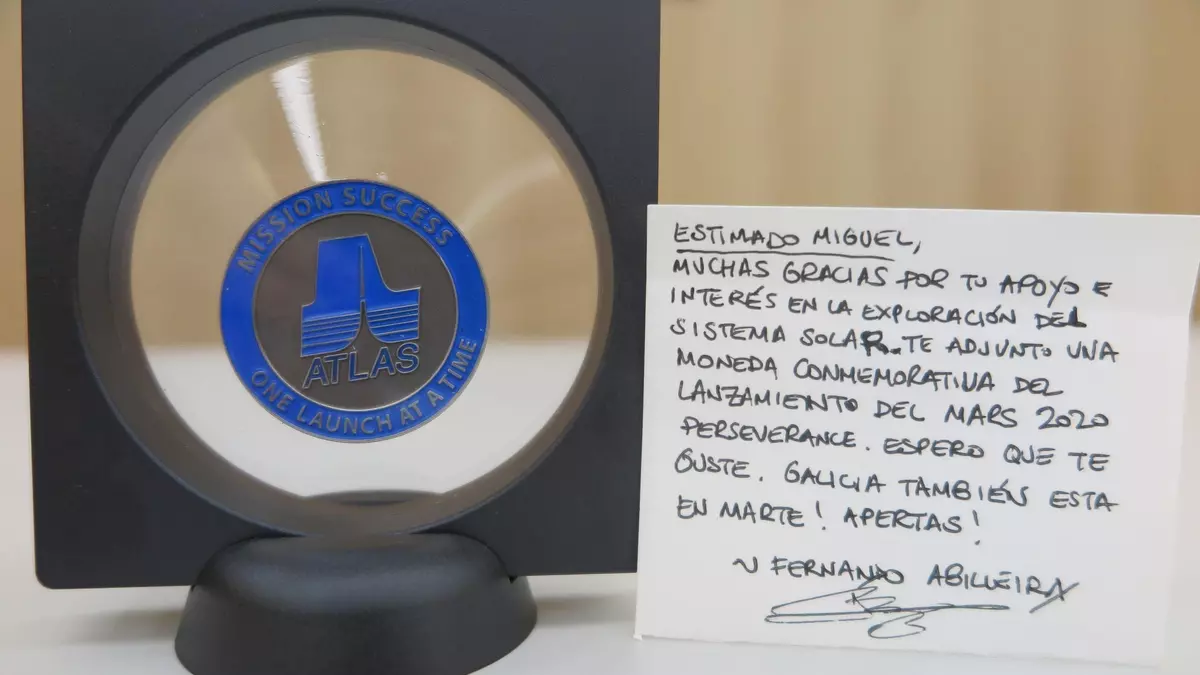 MISSION SUCCESS
ATLAS
ONE LAUNCH AT A TIME
ESTIMADO MIGUEL,
MUCHAS GRACIAS POR TU APOYO E
INTERÉS EN LA EXPLORACIÓN DEL
SISTEMA SOLAR. TE ADJUNTO UNA
MONEDA CONMEMORATIVA DEL
LANZAMIENTO DEL MARS 2020
PERSEVERANCE. ESPERO QUE TE
GUSTE. GALICIA TAMBIÉN ESTA
EN MARTE! APERTAS!
~ FERNANDO ABILLEIRA